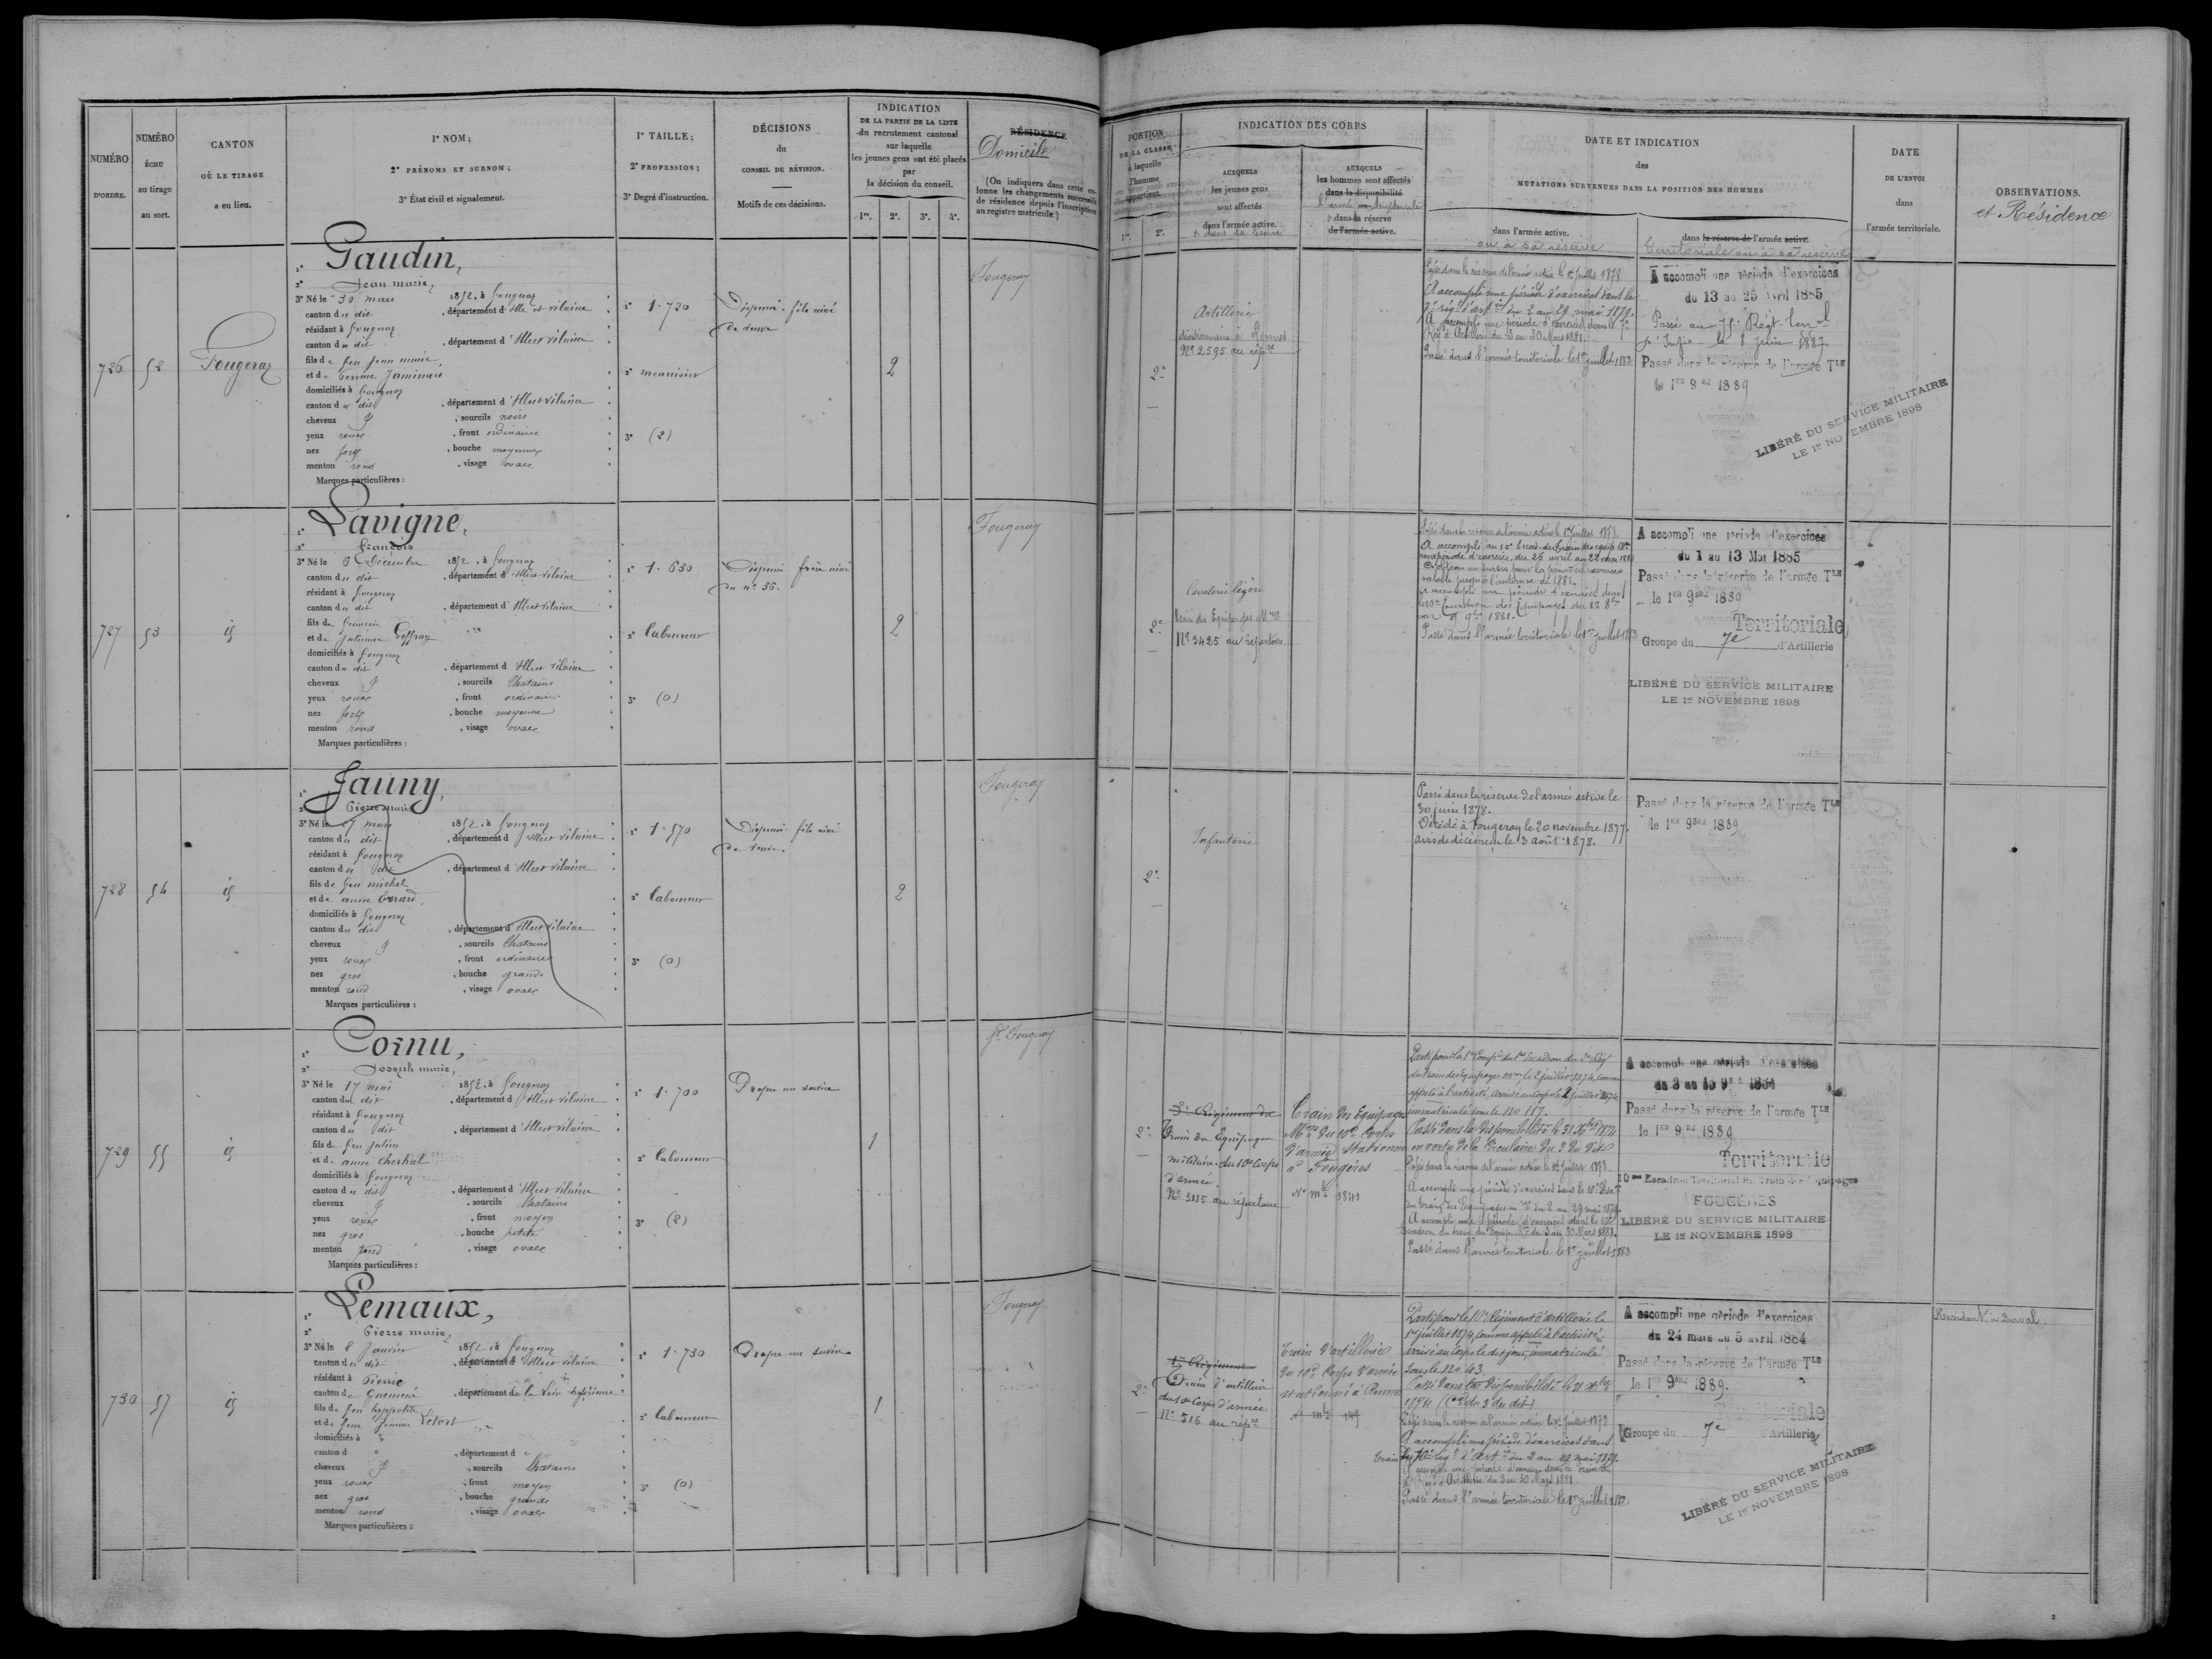 NUMÉRO
D'ORDRE.
NUMÉRO
ÉCHU
au tirage
au sort.
CANTON
OÙ LE TIRAGE
a eu lieu.
1° NOM;
2° PRÉNOMS ET SURNOM;
3° État civil et signalement.
1° TAILLE;
2° PROFESSION;
3° Degré d'instruction.
DÉCISIONS
du
CONSEIL DE RÉVISION.
Motifs de ces décisions.
INDICATION
DE LA PARTIE DE LA LISTE
du recrutement cantonal
sur laquelle
les jeunes gens ont été placés
par
la décision du conseil.
1re. 2e. 3e. 4e.
RÉSIDENCE
Domicile
(On indiquera dans cette co-
lonne les changements successifs
de résidence depuis l'inscription
au registre matricule.)
726
52
Fougeray
1° Gaudin,
2° Jean marie,
3° Né le 30 mars 1852, à Fougeray
canton du dit, département d'Ille et Vilaine
résidant à Fougeray
canton du dit, département d'Ille et Vilaine
fils de feu Jean marie
et de
domiciliés à Fougeray
canton du dit, département d'Ille et Vilaine
cheveux, sourcils noirs
yeux roux, front ordinaire
nez fort, bouche moyenne
menton rond, visage ovale
Marques particulières :
1° 1.720
2° menuisier
3° (2)
Dispensé. fils aîné
de veuve
2
Fougeray
727
53
id
1° Lavigne,
2° François
3° Né le 6 Décembre 1852, à Fougeray
canton du dit, département d'Ille et Vilaine
résidant à Fougeray
canton du dit, département d'Ille et Vilaine
fils de François
et de Julienne Geffray
domiciliés à Fougeray
canton du dit, département d'Ille et Vilaine
cheveux, sourcils Chatains
yeux roux, front ordinaire
nez fort, bouche moyenne
menton rond, visage ovale
Marques particulières :
1° 1.630
2° laboureur
3° (0)
Dispensé. frère aîné
du n° 36.
2
Fougeray
728
54
id
1° Jauny,
2° Pierre marie
3° Né le 27 mars 1852, à Fougeray
canton du dit, département d'Ille et Vilaine
résidant à Fougeray
canton du dit, département d'Ille et Vilaine
fils de feu michel
et de anne
domiciliés à Fougeray
canton du dit, département d'Ille et Vilaine
cheveux, sourcils Chatains
yeux roux, front ordinaire
nez gros, bouche grande
menton rond, visage ovale
Marques particulières :
1° 1.570
2° laboureur
3° (0)
Dispensé. fils aîné
de veuve.
2
Fougeray
729
55
id
1° Cornu,
2° Joseph marie,
3° Né le 17 mai 1852, à Fougeray
canton du dit, département d'Ille et Vilaine
résidant à Fougeray
canton du dit, département d'Ille et Vilaine
fils de feu Julien
et de anne
domiciliés à Fougeray
canton du dit, département d'Ille et Vilaine
cheveux, sourcils Chatains
yeux roux, front moyen
nez gros, bouche petite
menton rond, visage ovale
Marques particulières :
1° 1.700
2° laboureur
3° (2)
Propre au service
1
Gd Fougeray
730
57
id
1° Lemaux,
2° Pierre marie,
3° Né le 8 Janvier 1852, à Fougeray
canton du dit, département d'Ille et Vilaine
résidant à Pierric
canton de Guémené, département de la Loire inférieure
fils de feu hyppolite
et de feue Jeanne Letort
domiciliés à
canton d, département d
cheveux, sourcils Chatains
yeux roux, front moyen
nez gros, bouche grande
menton rond, visage ovale
Marques particulières :
1° 1.730
2° laboureur
3° (0)
Propre au service
1
Fougeray
PORTION
DE LA CLASSE
à laquelle
l'homme
appartient.
1re. 2e.
INDICATION DES CORPS
AUXQUELS
les jeunes gens
sont affectés
dans l'armée active.
et dans sa réserve
AUXQUELS
les hommes sont affectés
dans la disponibilité
l'armée territoriale
dans la réserve
de l'armée active.
DATE ET INDICATION
des
MUTATIONS SURVENUES DANS LA POSITION DES HOMMES
dans l'armée active.
ou à sa réserve
dans la réserve de l'armée active.
territoriale ou à sa réserve
DATE
DE L'ENVOI
dans
l'armée territoriale.
OBSERVATIONS.
et Résidence
2e
Artillerie
stationnaire à Rennes
N° 2595 au répre
Passé dans la réserve de l'armée active le 1er Juillet 1878.
A accompli une période d'exercices dans le
7e régt d'artie du 2 au 29 mai 1879.
A accompli une période d'exercices dans le 7e
Régt d'Artillerie du 3 au 30 Mars 1881.
Passé dans l'armée territoriale le 1er juillet 1883
A accompli une période d'exercices
du 13 au 25 Avril 1885
Passé au 75e Régt terral
d'Infie le 8 juin 1887
Passé dans la réserve de l'armée Tle
le 1er 9bre 1889
LIBÉRÉ DU SERVICE MILITAIRE
LE 1er NOVEMBRE 1898
2e
Cavalerie légère
train des Equipages Mres
N° 3425 au répertoire
Passé dans la réserve de l'armée active le 1er juillet 1878.
A accompli au 10e Escad. du train des équip. Mres
une période d'exercices du 26 avril au 22 mai 1880
valable jusqu'à l'automne de 1881.
A accompli une période d'exercices dans
le 10e Escadron des Equipages du 12 8bre
au 9 9bre 1881.
Passé dans l'armée territoriale le 1er juillet 1883
A accompli une période d'exercices
du 1 au 13 Mai 1885
Passé dans la réserve de l'armée Tle
le 1er 9bre 1889
Territoriale
Groupe du 7e d'Artillerie
LIBÉRÉ DU SERVICE MILITAIRE
LE 1er NOVEMBRE 1898
2e
Infanterie
Passé dans la réserve de l'armée active le
30 juin 1878.
Décédé à Fougeray le 20 novembre 1877.
avis de décès reçu le 13 août 1878.
Passé dans la réserve de l'armée Tle
le 1er 9bre 1889
2e
3e Régiment du
Train des Equipages
militaires du 10e Corps
d'armée.
N° 3115 au répertoire
Train des Equipages
Mres du 10e Corps
d'armée Stationné
à Fougères
N° mle 1841
Parti pour la 1re Compie du 1er Escadron du 3e Régt
du train des équipages mres le 2 juillet 1874 comme
appelé à l'activité, arrivé au corps le 2 juillet 1874
immatriculé sous le no 117.
Passé dans la disponibilité le 31 Xbre 1874
en vertu de la Circulaire du 3 du dit
Passé dans la réserve de l'armée active le 1er Juillet 1878
A accompli une période d'exercices dans le 10e Esc
du train des Equipages mres du 2 au 29 mai 1879
A accompli une période d'exercices dans le 10e
Escadron du train des Equip. Mres du 3 au 30 Mars 1881.
Passé dans l'armée territoriale le 1er juillet 1883
A accompli une période d'exercices
du 3 au 15 9bre 1884
Passé dans la réserve de l'armée Tle
le 1er 9bre 1889
Territoriale
10me Escadron Territorial du Train des Equipages
FOUGÈRES
LIBÉRÉ DU SERVICE MILITAIRE
LE 1er NOVEMBRE 1898
2e
Régiment
Train d'artillerie
du 10e Corps d'armée
N° 516 au répre
Train d'artillerie
du 10e Corps d'armée
stationné à Rennes
N° mle 149
Parti pour le 10e Régiment d'artillerie le
1er juillet 1874, comme appelé à l'activité,
arrivé au corps le dit jour, immatriculé
sous le no 43.
Passé dans la disponibilité le 31 Xbre
1874 (Cre du 3 du dit)
Passé dans la réserve de l'armée active le 1er Juillet 1878
A accompli une période d'exercices dans
train du 10e régt d'artie du 2 au 29 mai 1879.
A accompli une période d'exercices dans le train du
10e Régt d'Artillerie du 3 au 30 Mars 1881
Passé dans l'armée territoriale le 1er juillet 1883
A accompli une période d'exercices
du 24 mars au 5 avril 1884
Passé dans la réserve de l'armée Tle
le 1er 9bre 1889.
Territoriale
Groupe du 7e d'Artillerie
LIBÉRÉ DU SERVICE MILITAIRE
LE 1er NOVEMBRE 1898
Résident à Derval.